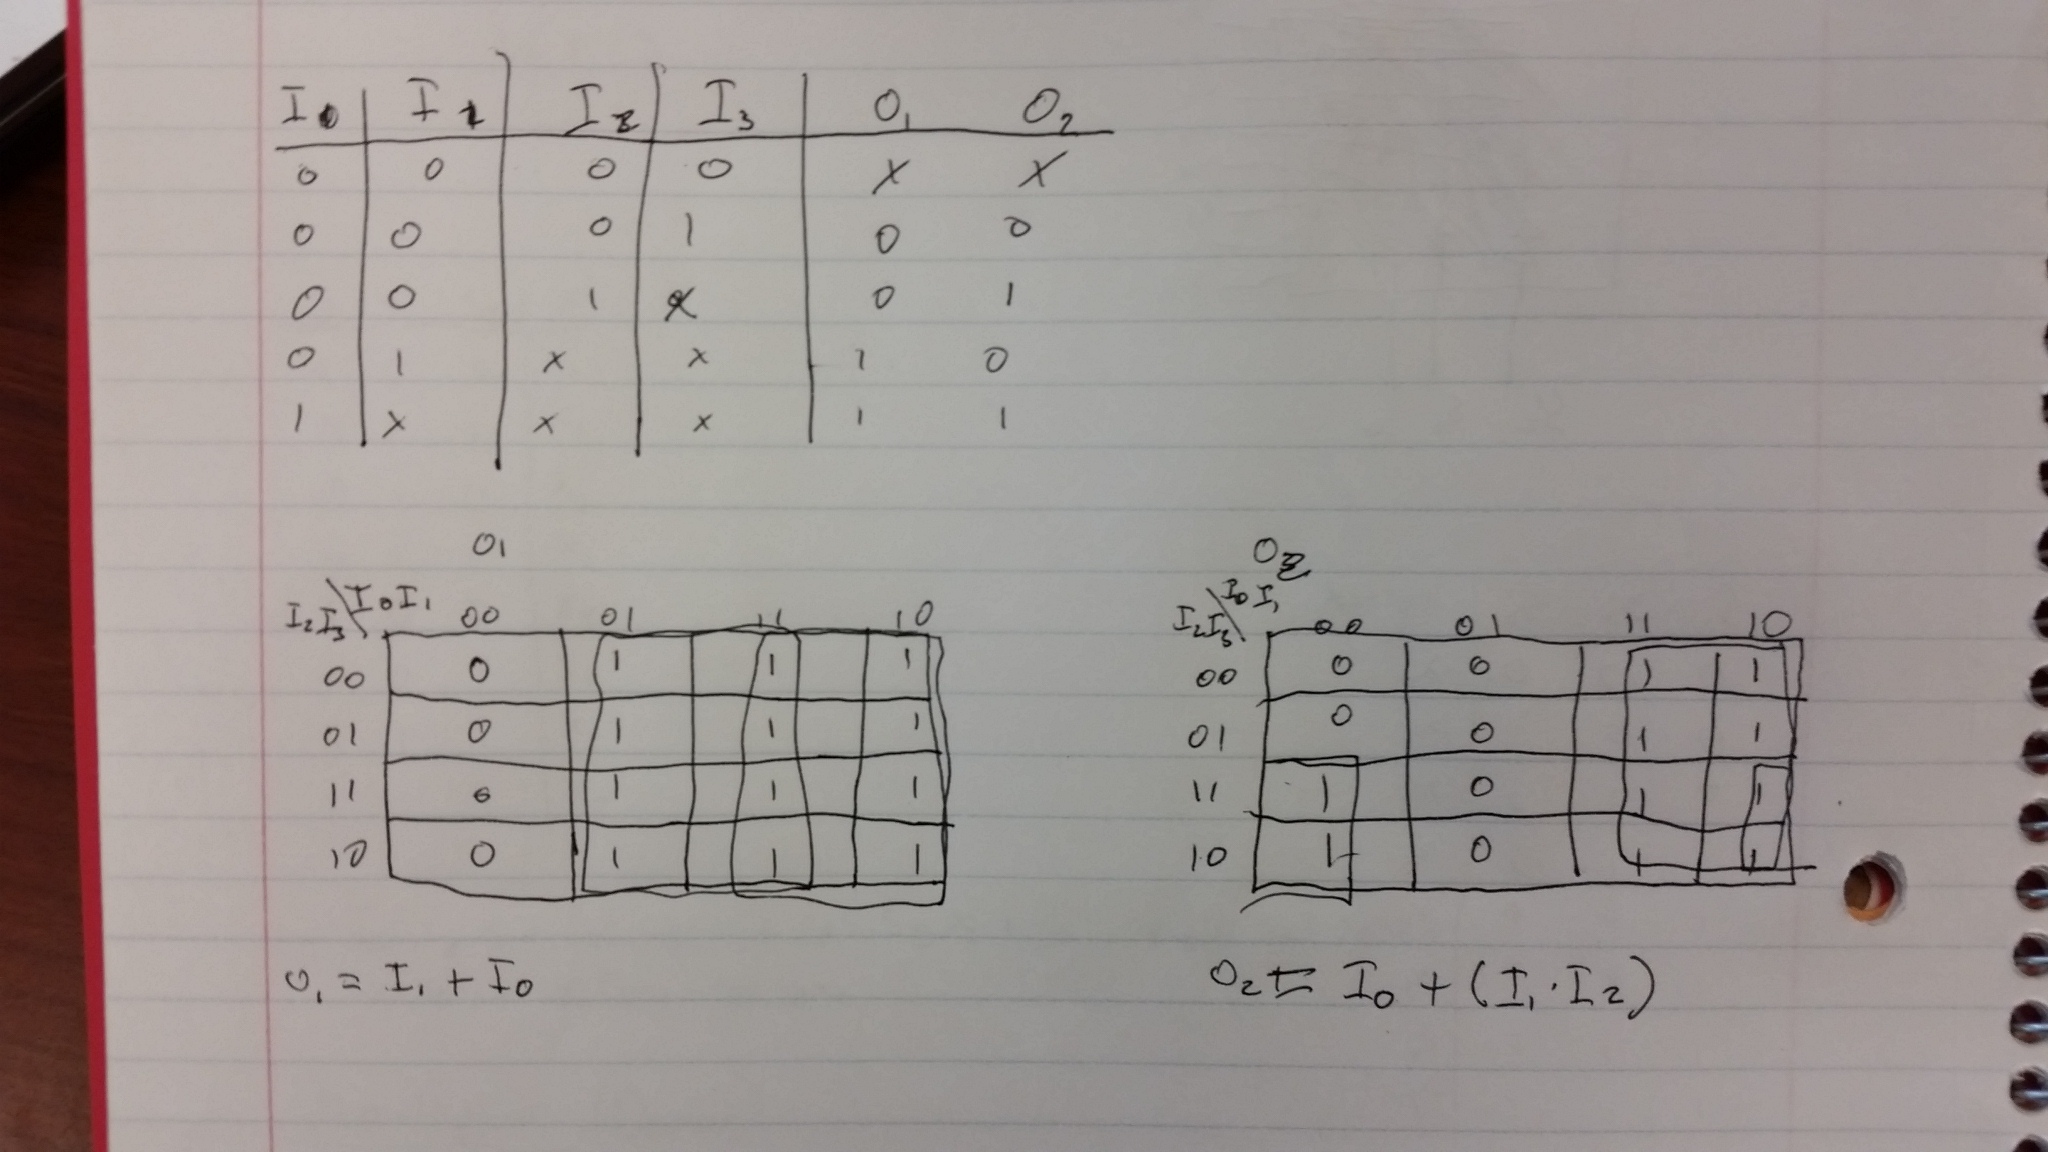 I0 I1 I2 I3 O1 O2
0 0 0 0 X X
0 0 0 1 0 0
0 0 1 X 0 1
0 1 X X 1 0
1 X X X 1 1
O1
I2I3\I0I1 00 01 11 10
00 0 1 1 1
01 0 1 1 1
11 0 1 1 1
10 0 1 1 1
O1 = I1 + I0
O2
I2I3\I0I1 00 01 11 10
00 0 0 1 1
01 0 0 1 1
11 1 0 1 1
10 1 0 1 1
O2 = I0 + (I1·I2)